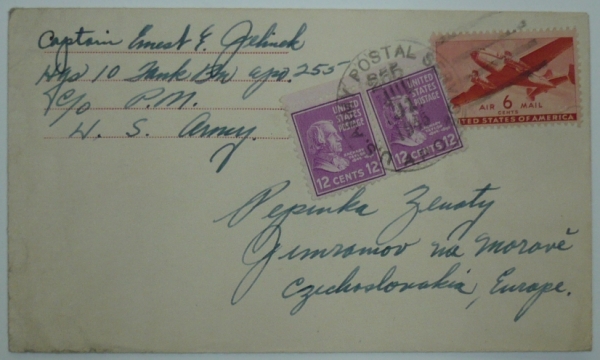 Captain Ernest E. Jelinek
Hqs 10 Tank Bn apo. 255
c/o P.M.
U. S. Army.
POSTAL
UNITED
STATES
POSTAGE
12 CENTS 12
UNITED
STATES
POSTAGE
12 CENTS 12
AIR 6 MAIL
CENTS
UNITED STATES OF AMERICA
Pepinka Zeusty
Jimramov na Moravě
Czechoslovakia, Europe.